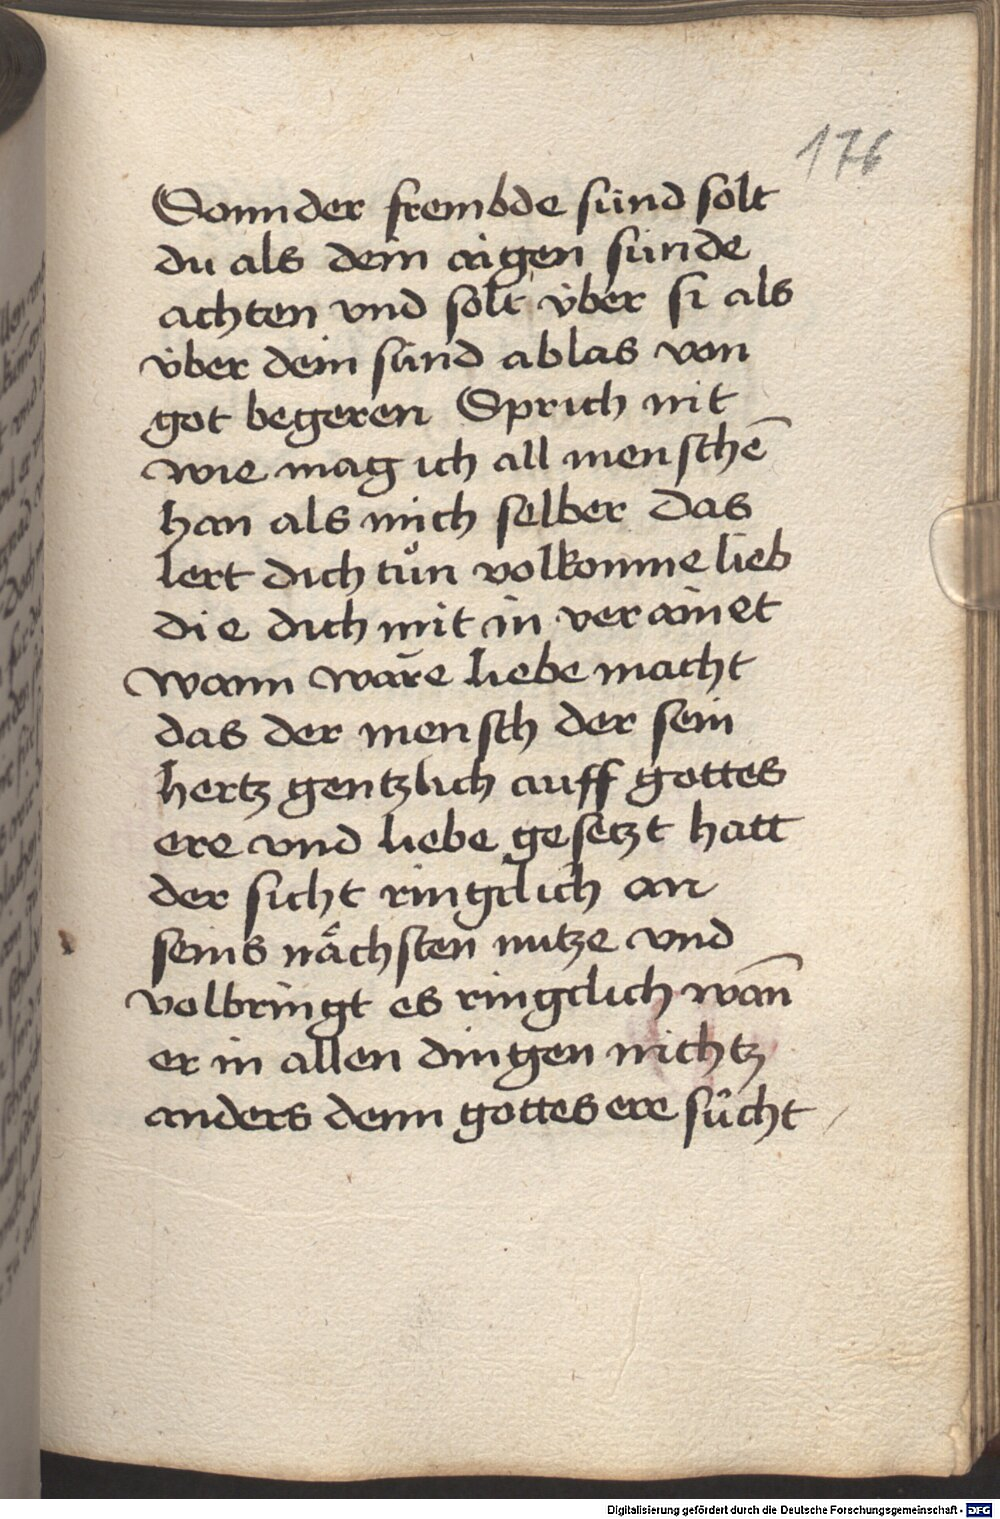 176
Sonnder frembde sünd solt
du als dein aigen sünde
achten vnd solt v̈ber si als
v̈ber dein sünd ablas von
got begeren Sprich nit
wie mag ich all menschē
han als mich selber das
lert dich tůn volkomne lieb
die dich mit in verainet
wann ware liebe macht
das der mensch der sein
hertz gentzlich auff gottes
ere vnd liebe gesetzt hatt
der sicht ringclich an
seins nächsten nutze vnd
volbringt es ringclich wan̄
er in allen dingen nichtz
anders denn gottes ere sücht
Digitalisierung gefördert durch die Deutsche Forschungsgemeinschaft - DFG